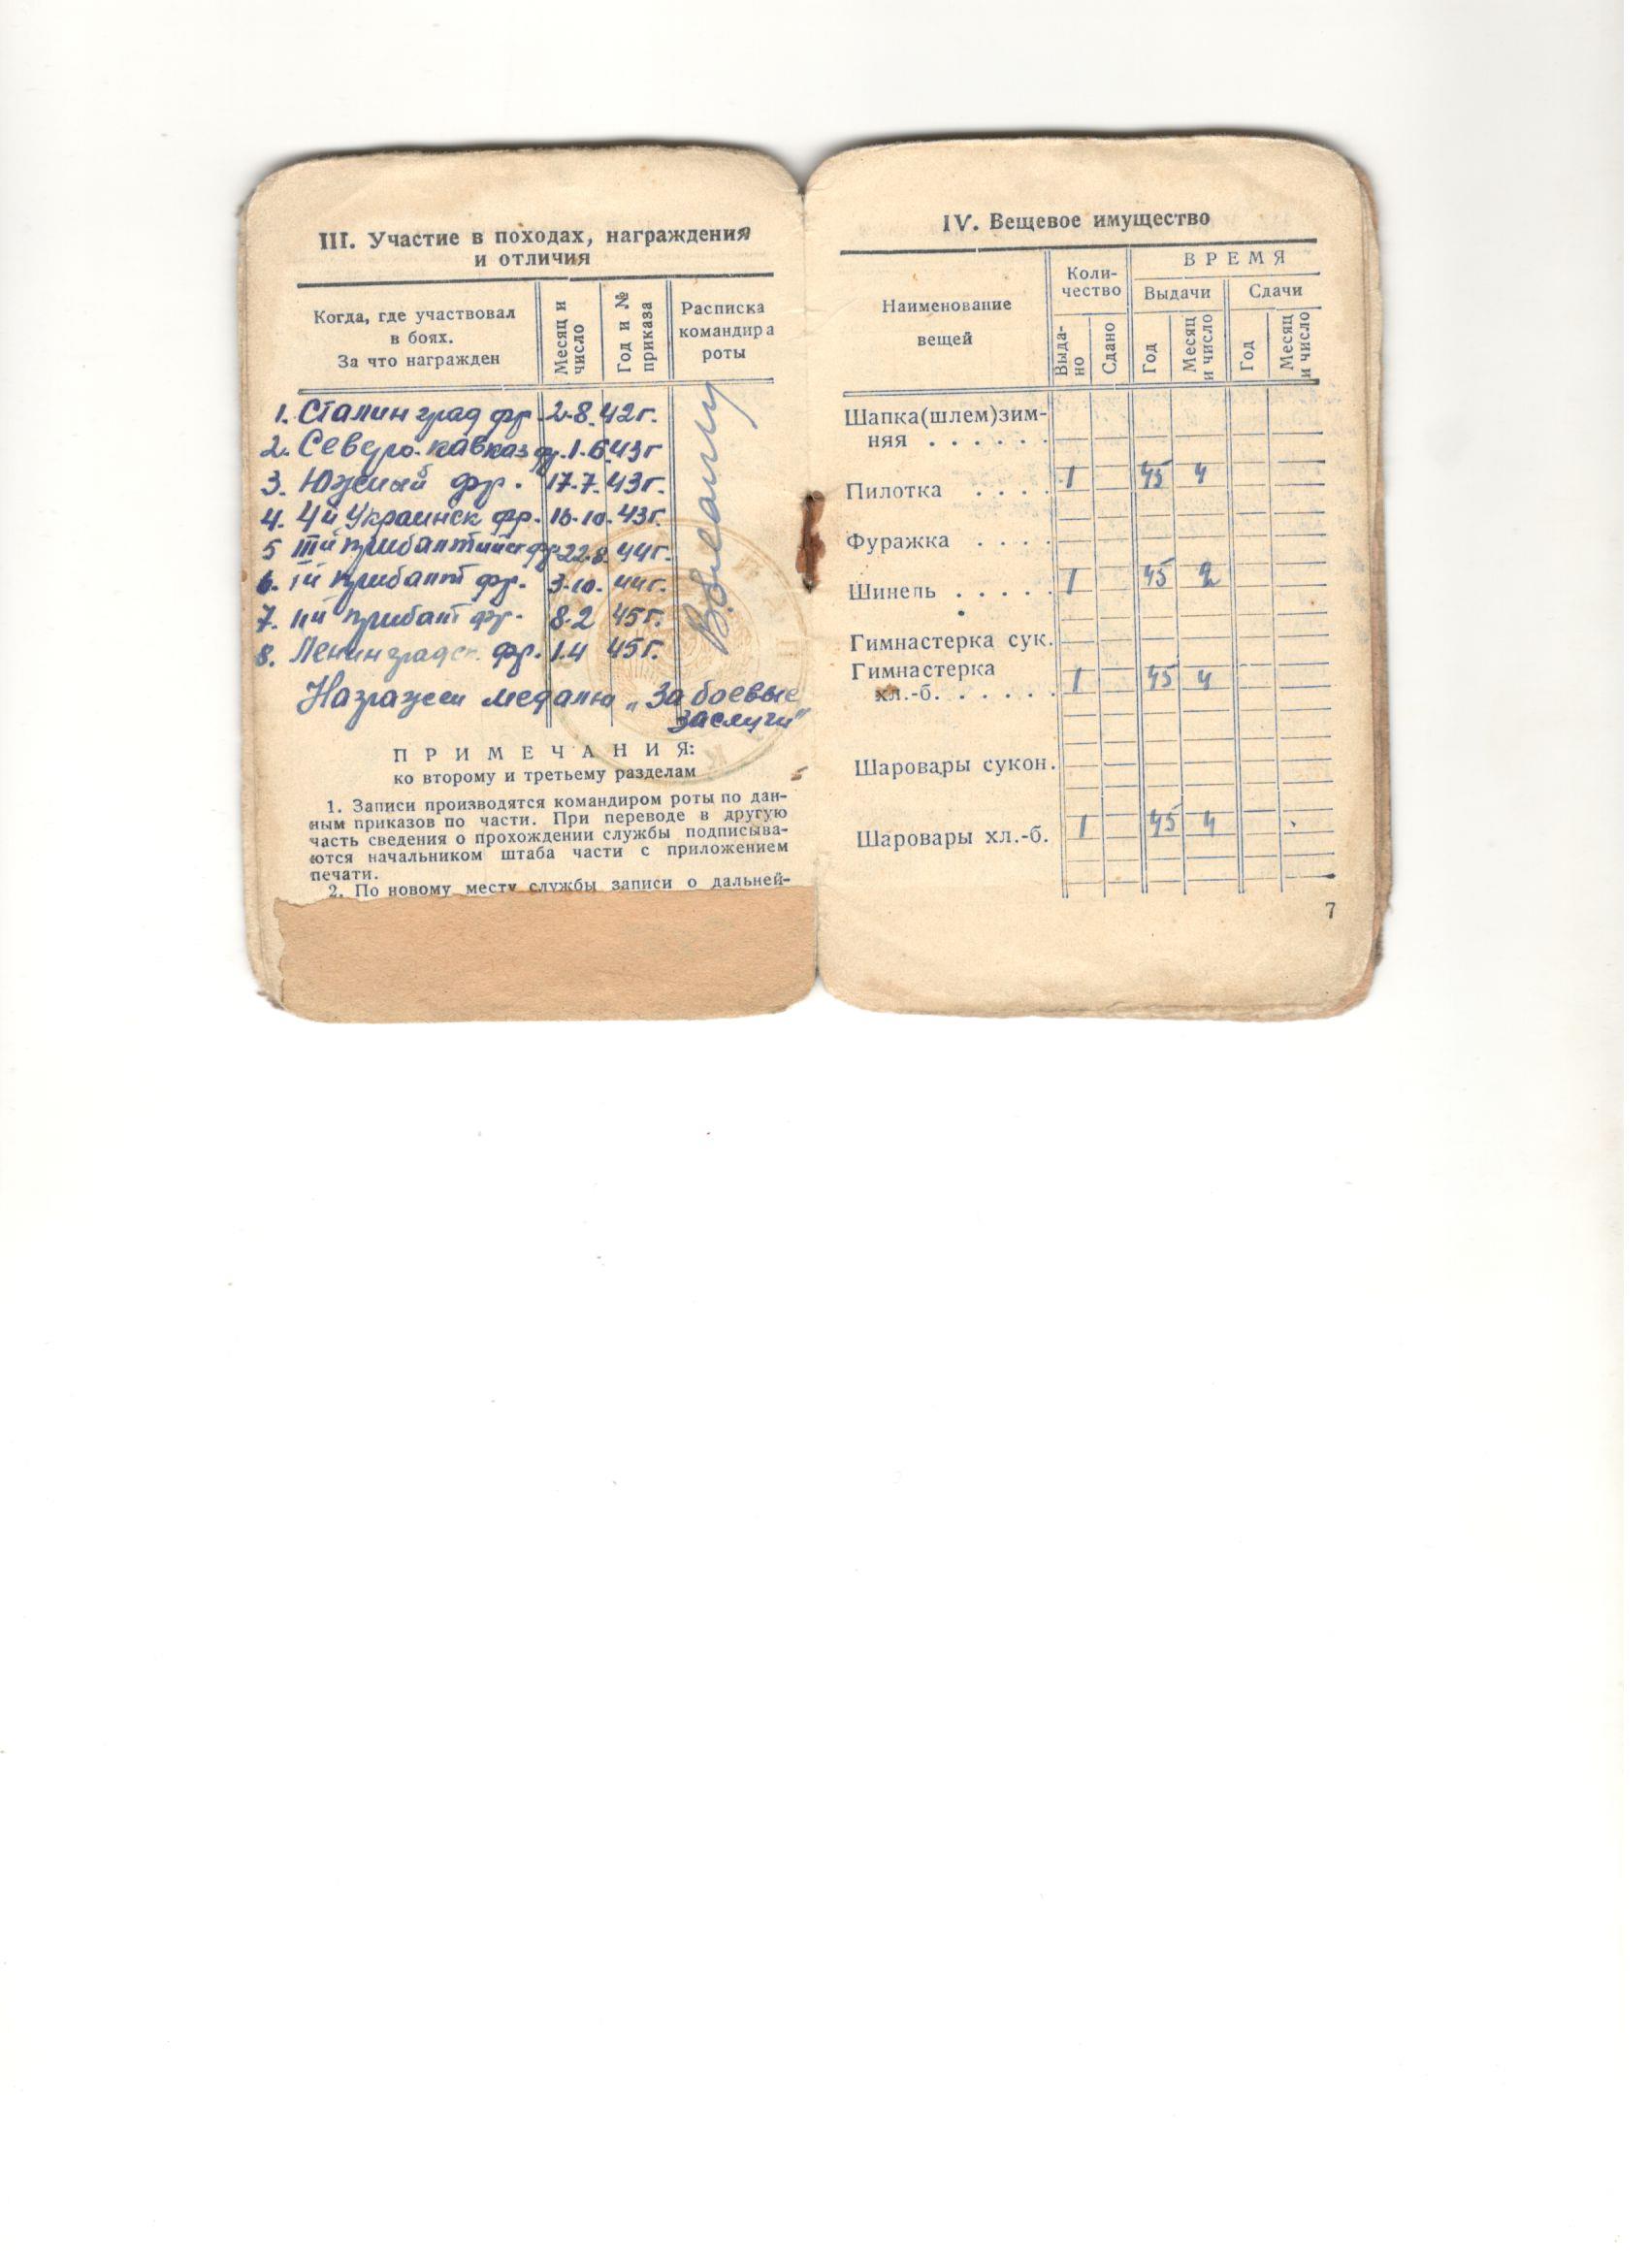 III. Участие в походах, награждения
и отличия
Когда, где участвовал
в боях.
За что награжден
Месяц и
число
Год и №
приказа
Расписка
командира
роты
1. Сталинград фр. 2.8.42г.
2. Северо-кавказ фр. 1.6.43г
3. Южный фр. 17.7.43г.
4. 4й Украинск фр. 16.10.43г.
5 IIIй прибалтийск фр. 22.8. 44г.
6. Iй прибалт фр. 3.10. 44г.
7. IIй прибалт фр. 8.2 45г.
8. Ленинградск. фр. 1.4 45г.
Награжен медалю „За боевые
заслуги"
ПРИМЕЧАНИЯ:
ко второму и третьему разделам
1. Записи производятся командиром роты по дан-
ным приказов по части. При переводе в другую
часть сведения о прохождении службы подписыва-
ются начальником штаба части с приложением
печати.
2. По новому месту службы записи о дальней-
IV. Вещевое имущество
Наименование
вещей
Коли-
чество
ВРЕМЯ
Выдачи Сдачи
Выда-
но
Сдано
Год
Месяц
и число
Год
Месяц
и число
Шапка(шлем)зим-
няя . . . . . .
Пилотка . . . . 1 45 4
Фуражка . . . .
Шинель . . . . . 1 45 2
Гимнастерка сук.
Гимнастерка
хл.-б. . . . . . 1 45 4
Шаровары сукон.
Шаровары хл.-б. 1 45 4
7